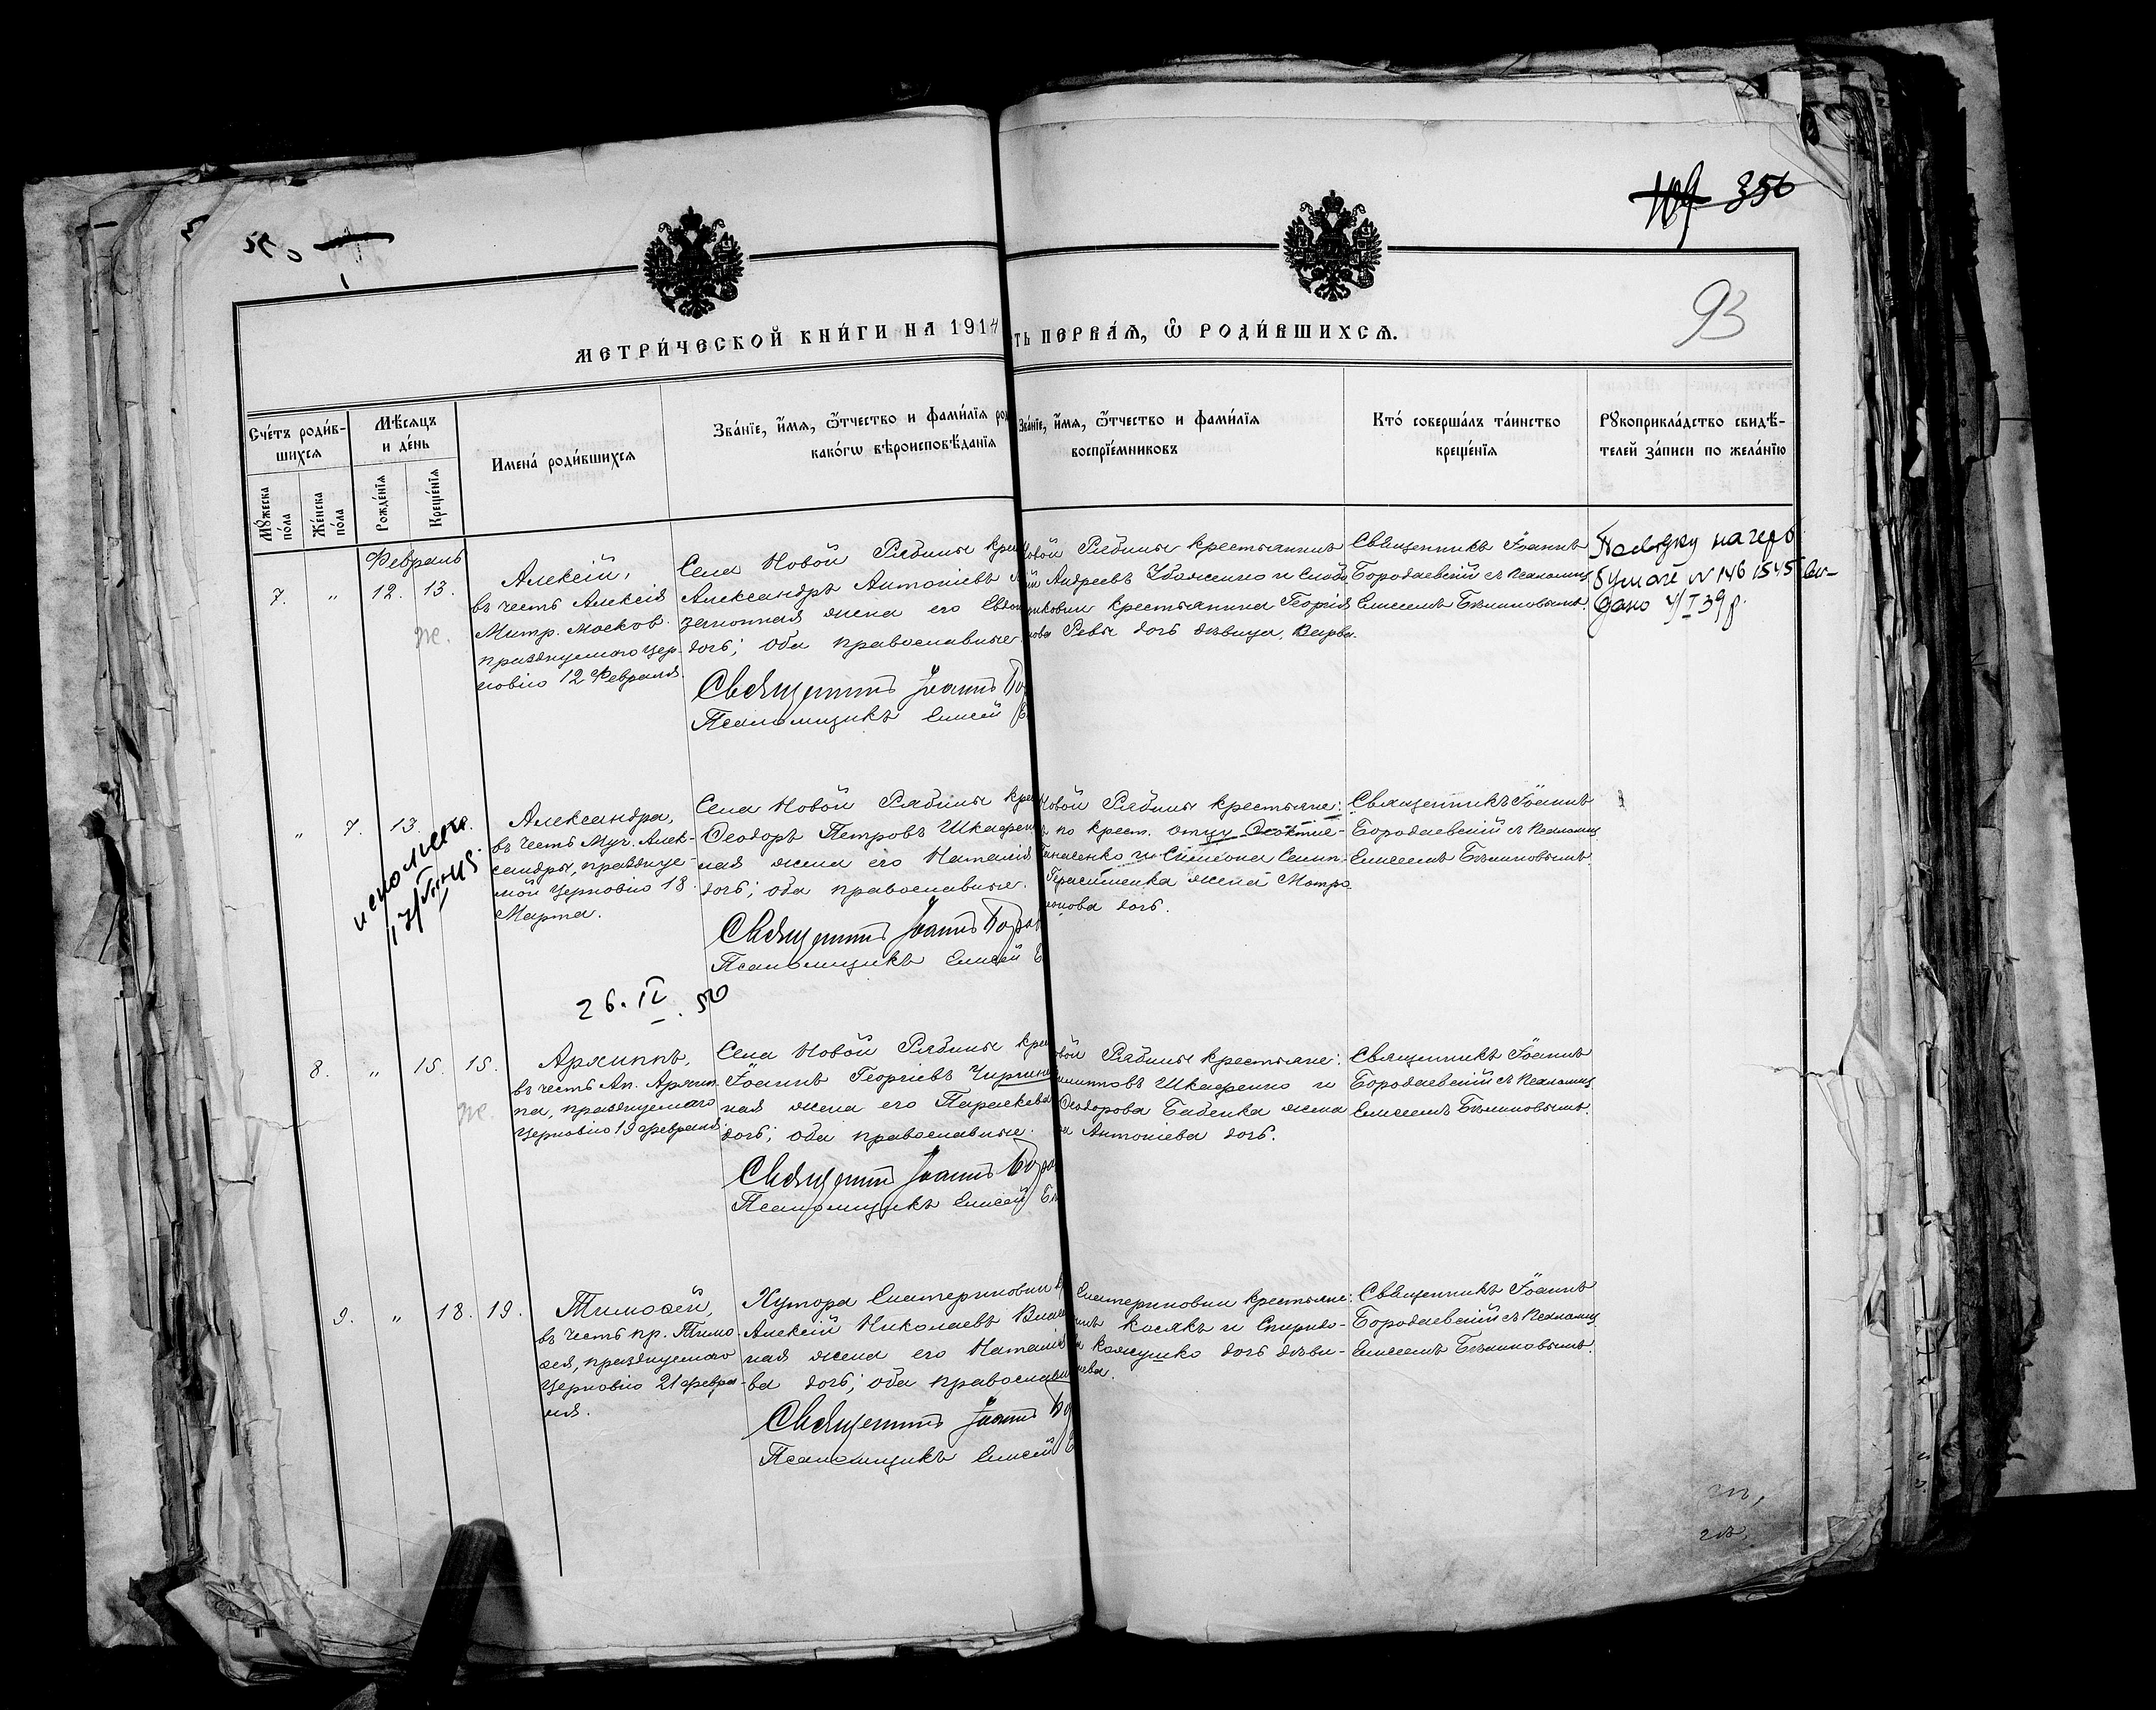 356
93
МЕТРИ́ЧЕСКОЙ КНИ́ГИ НА 1914
ТЬ ПЕРВА́Я, Ѿ РОДИ́ВШИХСЯ.
Сче́тъ роди́в-
шихся
Му́жеска по́ла
Же́нска по́ла
Мѣ́сяцъ
и де́нь
Рожде́нїя
Креще́нїя
Имена̀ роди́вшихся
Зва́нїе, и҆́мя, ѻ҆́тчество и фами́лїя ро
како́гѡ вѣроисповѣ́данїя
Зва́нїе, и҆́мя, ѻ҆́тчество и фами́лїя
воспрїе́мниковъ
Кто́ соверша́лъ та́инство
креще́нїя
Рꙋкоприкла́дство свидѣ́-
телей за́писи по жела́нїю
Февраль
7. " 12. 13.
Алексій,
въ честь Алексія
Митр. Москов.
празднуемаго Цер-
ковію 12 Февраля.
Села Новой Рябины кре
Александръ Антоніевъ
законная жена его Евдо
дочь; оба православные
Священникъ Іоаннъ Бо
Псаломщикъ Елисей
Новой Рябины крестьянинъ
Андреевъ Убоженко и Слоб.
крестьянина Георгія
Ревы дочь дѣвица, Варва.
Священникъ Іоаннъ
Бородаевскій съ Псаломщ.
Елисеемъ Бѣликовымъ.
на герб
бумагѣ № 146 1545 Вы-
дано 4/I 39 г.
" 7. 13.
Александра,
въ честь Муч. Алек-
сандры, празднуе-
мой Церковію 18.
Марта.
Села Новой Рябины кре
Ѳеодоръ Петровъ Шкафен
ная жена его Наталія
дочь; оба православные.
Священникъ Іоаннъ Бород
Псаломщикъ Елисей Б
Новой Рябины крестьяне:
по крест. отцу
и Симеона Семи-
Герасименка жена Матро-
дочь.
Священникъ Іоаннъ
Бородаевскій съ Псаломщ.
Елисеемъ Бѣликовымъ.
26. IV. 50
8. " 15. 15.
Архиппъ,
въ честь Ап. Архип-
па, празднуемаго
Церковію 19 февраля.
Села Новой Рябины кре
Іоаннъ Георгіевъ
ная жена его Параскева
дочь; оба православные.
Священникъ Іоаннъ Бород
Псаломщикъ Елисей Бѣ
Рябины крестьяне:
Шкафенко и
Ѳеодорова Бабенка жена
Антоніева дочь.
Священникъ Іоаннъ
Бородаевскій съ Псаломщ.
Елисеемъ Бѣликовымъ.
9. " 18. 19.
Тимоѳей,
въ честь пр. Тимо-
ѳея, празднуемаго
Церковію 21 февра-
ля.
Хутора Екатериновки к
Алексій Николаевъ
ная жена его Наталія
ва дочь; оба православн
Священникъ Іоаннъ Бо
Псаломщикъ Елисей
Екатериновки крестьяне:
Косякъ и Спиридо-
Кожушко дочь дѣви-
Священникъ Іоаннъ
Бородаевскій съ Псаломщ.
Елисеемъ Бѣликовымъ.